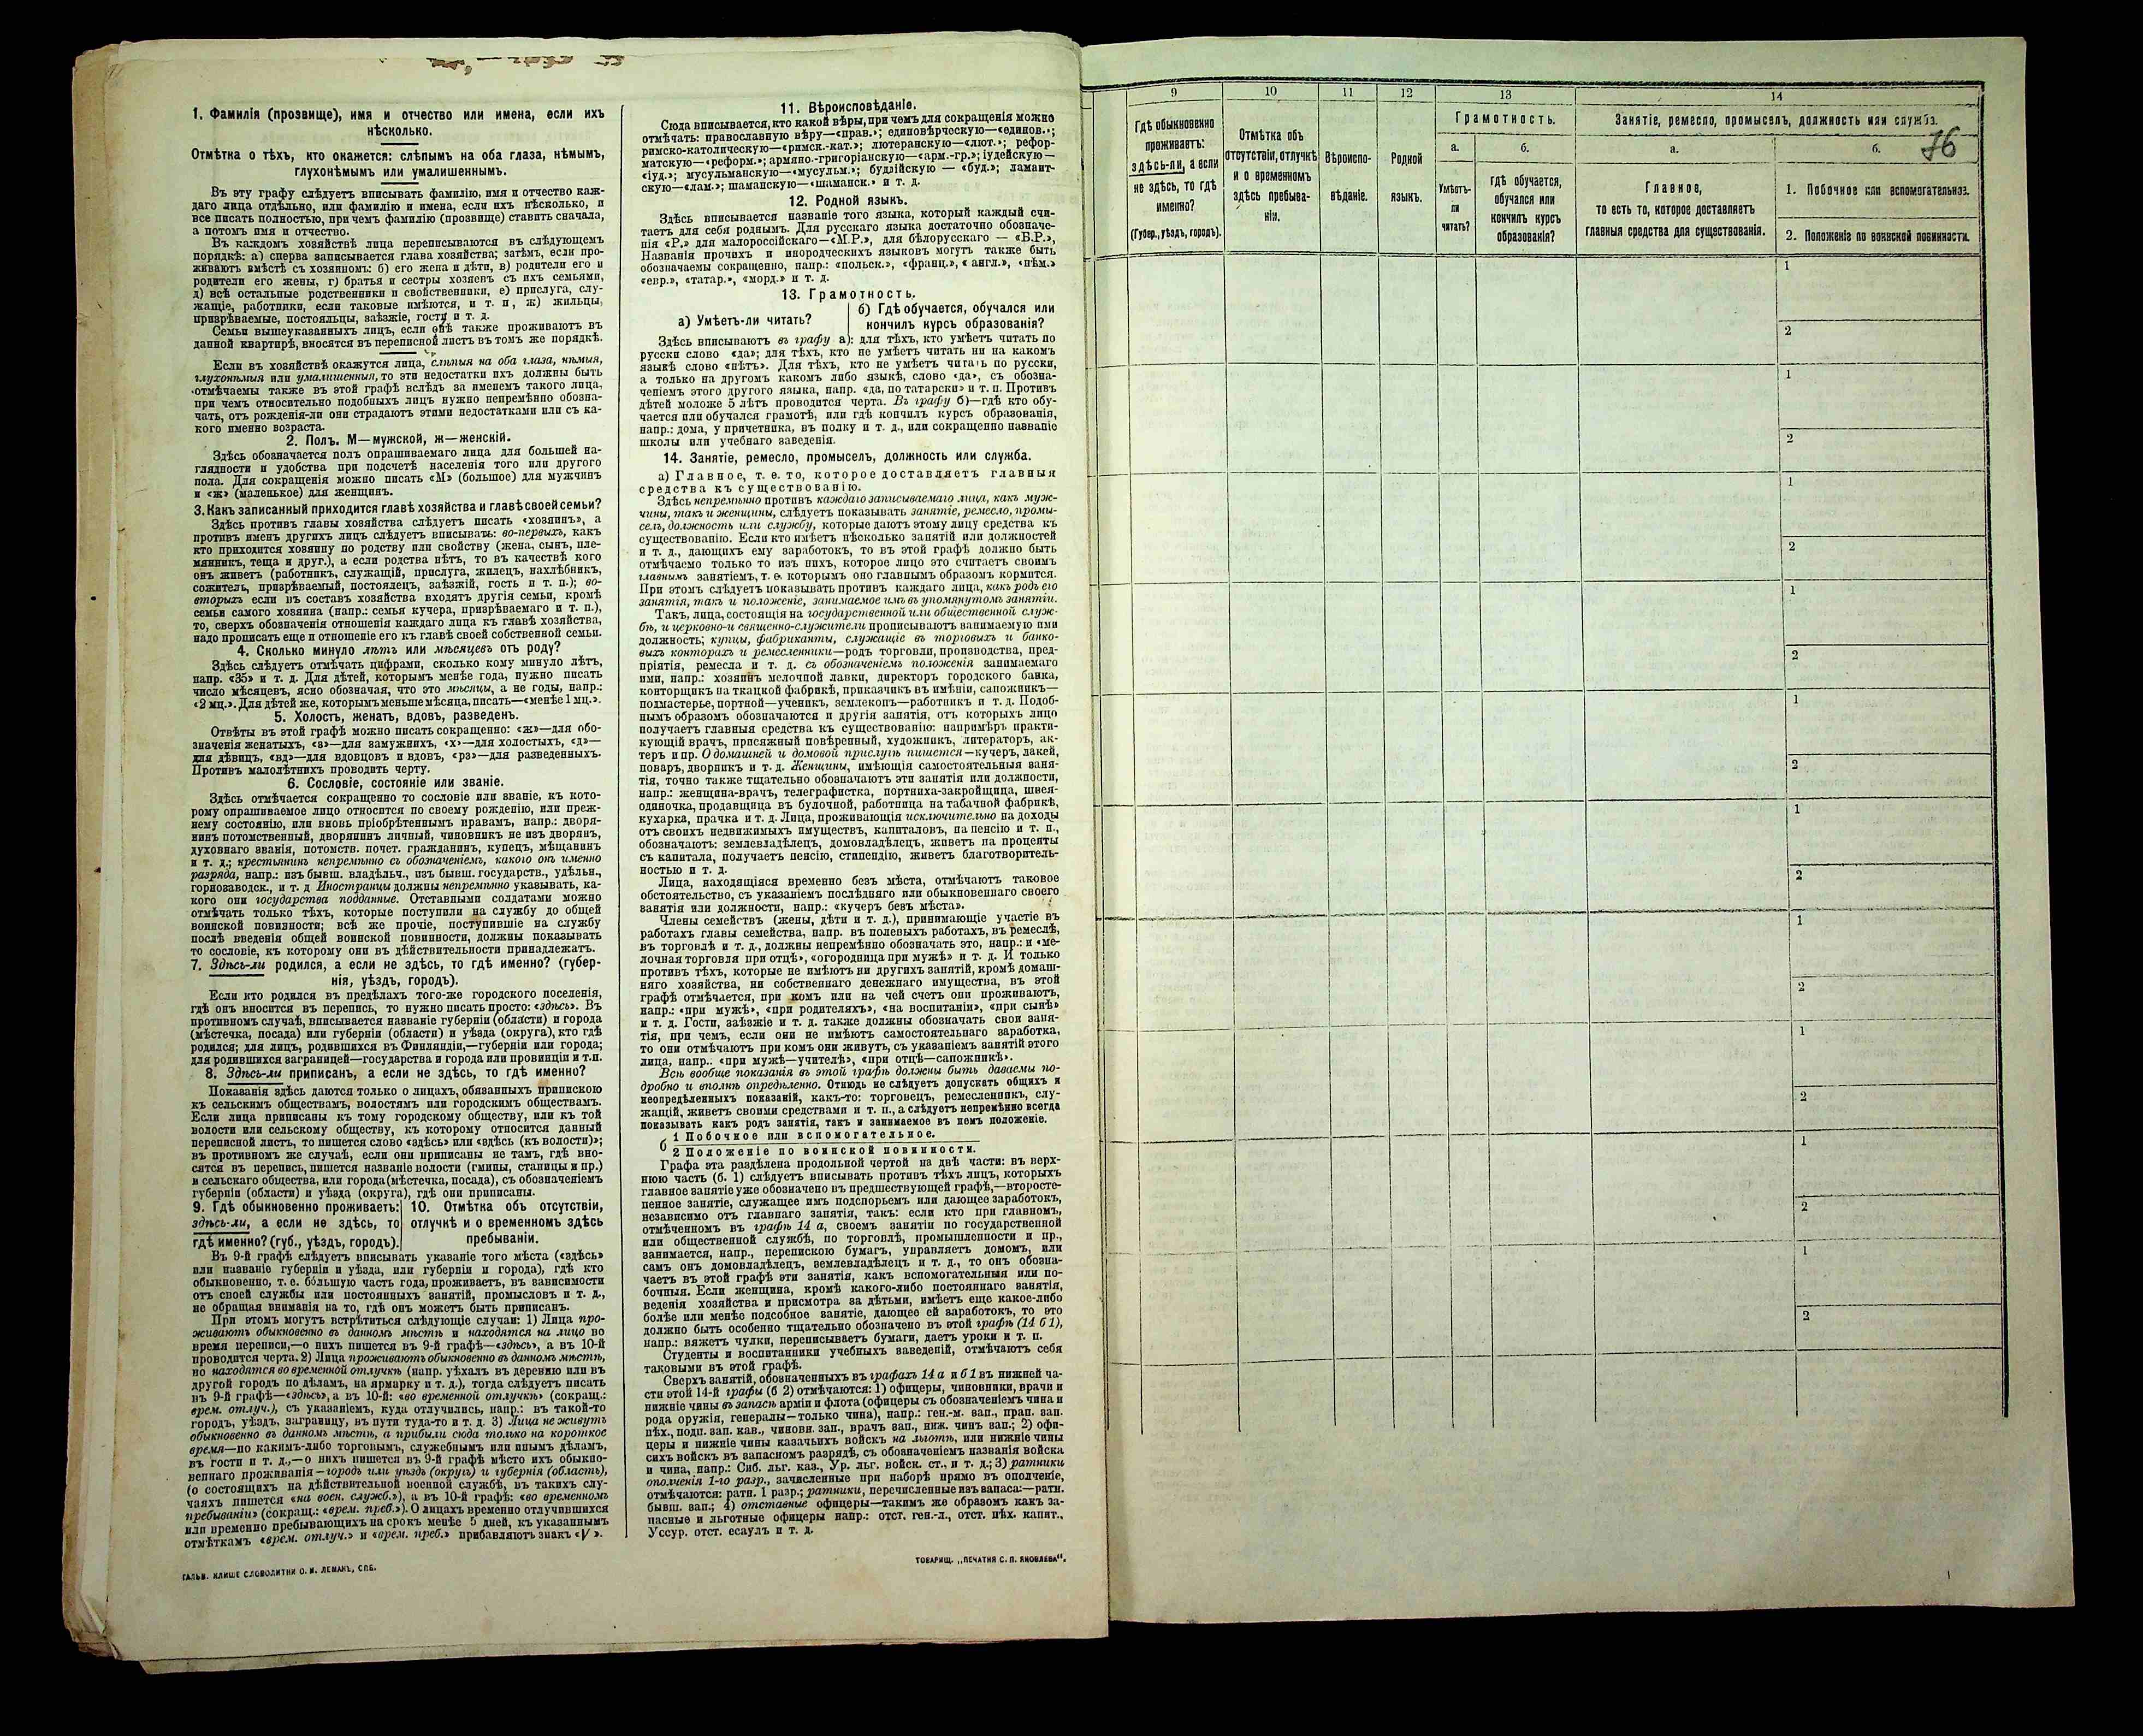 1. Фамилія (прозвище), имя и отчество или имена, если ихъ
нѣсколько.
Отмѣтка о тѣхъ, кто окажется: слѣпымъ на оба глаза, нѣмымъ,
глухонѣмымъ или умалишеннымъ.
Въ эту графу слѣдуетъ вписывать фамилію, имя и отчество каж-
даго лица отдѣльно, или фамилію и имена, если ихъ нѣсколько, и
все писать полностью, при чемъ фамилію (прозвище) ставить сначала,
а потомъ имя и отчество.
Въ каждомъ хозяйствѣ лица переписываются въ слѣдующемъ
порядкѣ: а) сперва записывается глава хозяйства; затѣмъ, если про-
живаютъ вмѣстѣ съ хозяиномъ: б) его жена и дѣти, в) родители его и
родители его жены, г) братья и сестры хозяевъ съ ихъ семьями,
д) всѣ остальные родственники и свойственники, е) прислуга, слу-
жащіе, работники, если таковые имѣются, и т. п, ж) жильцы,
призрѣваемые, постояльцы, заѣзжіе, гости и т. д.
Семьи вышеуказанныхъ лицъ, если онѣ также проживаютъ въ
данной квартирѣ, вносятся въ переписной листъ въ томъ же порядкѣ.
Если въ хозяйствѣ окажутся лица, слѣпыя на оба глаза, нѣмыя,
глухонѣмыя или умалишенныя, то эти недостатки ихъ должны быть
отмѣчаемы также въ этой графѣ вслѣдъ за именемъ такого лица,
при чемъ относительно подобныхъ лицъ нужно непремѣнно обозна-
чать, отъ рожденія-ли они страдаютъ этими недостатками или съ ка-
кого именно возраста.
2. Полъ. М—мужской, ж—женскій.
Здѣсь обозначается полъ опрашиваемаго лица для большей на-
глядности и удобства при подсчетѣ населенія того или другого
пола. Для сокращенія можно писать «М» (большое) для мужчинъ
и «ж» (маленькое) для женщинъ.
3. Какъ записанный приходится главѣ хозяйства и главѣ своей семьи?
Здѣсь противъ главы хозяйства слѣдуетъ писать «хозяинъ», а
противъ именъ другихъ лицъ слѣдуетъ вписывать: во-первыхъ, какъ
кто приходится хозяину по родству или свойству (жена, сынъ, пле-
мянникъ, теща и друг.), а если родства нѣтъ, то въ качествѣ кого
онъ живетъ (работникъ, служащій, прислуга, жилецъ, нахлѣбникъ,
сожитель, призрѣваемый, постоялецъ, заѣзжій, гость и т. п.); во-
вторыхъ если въ составъ хозяйства входятъ другія семьи, кромѣ
семьи самого хозяина (напр.: семья кучера, призрѣваемаго и т. п.),
то, сверхъ обозначенія отношенія каждаго лица къ главѣ хозяйства,
надо прописать еще и отношеніе его къ главѣ своей собственной семьи.
4. Сколько минуло лѣтъ или мѣсяцевъ отъ роду?
Здѣсь слѣдуетъ отмѣчать цифрами, сколько кому минуло лѣтъ,
напр. «35» и т. д. Для дѣтей, которымъ менѣе года, нужно писать
число мѣсяцевъ, ясно обозначая, что это мѣсяцы, а не годы, напр.:
«2 мц.». Для дѣтей же, которымъ меньше мѣсяца, писать—«менѣе 1 мц.».
5. Холостъ, женатъ, вдовъ, разведенъ.
Отвѣты въ этой графѣ можно писать сокращенно: «ж»—для обо-
значенія женатыхъ, «з»—для замужнихъ, «х»—для холостыхъ, «д»—
для дѣвицъ, «вд»—для вдовцовъ и вдовъ, «рз»—для разведенныхъ.
Противъ малолѣтнихъ проводить черту.
6. Сословіе, состояніе или званіе.
Здѣсь отмѣчается сокращенно то сословіе или званіе, къ кото-
рому опрашиваемое лицо относится по своему рожденію, или преж-
нему состоянію, или вновь пріобрѣтеннымъ правамъ, напр.: дворя-
нинъ потомственный, дворянинъ личный, чиновникъ не изъ дворянъ,
духовнаго званія, потомств. почет. гражданинъ, купецъ, мѣщанинъ
и т. д.; крестьянинъ непремѣнно съ обозначеніемъ, какого онъ именно
разряда, напр.: изъ бывш. владѣльч., изъ бывш. государств., удѣльн.,
горнозаводск., и т. д Иностранцы должны непремѣнно указывать, ка-
кого они государства подданные. Отставными солдатами можно
отмѣчать только тѣхъ, которые поступили на службу до общей
воинской повинности; всѣ же прочіе, поступившіе на службу
послѣ введенія общей воинской повинности, должны показывать
то сословіе, къ которому они въ дѣйствительности принадлежатъ.
7. Здѣсь-ли родился, а если не здѣсь, то гдѣ именно? (губер-
нія, уѣздъ, городъ).
Если кто родился въ предѣлахъ того-же городского поселенія,
гдѣ онъ вносится въ перепись, то нужно писать просто: «здѣсь». Въ
противномъ случаѣ, вписывается названіе губерніи (области) и города
(мѣстечка, посада) или губерніи (области) и уѣзда (округа), кто гдѣ
родился; для лицъ, родившихся въ Финляндіи,—губерніи или города;
для родившихся заграницей—государства и города или провинціи и т.п.
8. Здѣсь-ли приписанъ, а если не здѣсь, то гдѣ именно?
Показанія здѣсь даются только о лицахъ, обязанныхъ припискою
къ сельскимъ обществамъ, волостямъ или городскимъ обществамъ.
Если лица приписаны къ тому городскому обществу, или къ той
волости или сельскому обществу, къ которому относится данный
переписной листъ, то пишется слово «здѣсь» или «здѣсь (къ волости)»;
въ противномъ же случаѣ, если они приписаны не тамъ, гдѣ вно-
сятся въ перепись, пишется названіе волости (гмины, станицы и пр.)
и сельскаго общества, или города (мѣстечка, посада), съ обозначеніемъ
губерніи (области) и уѣзда (округа), гдѣ они приписаны.
9. Гдѣ обыкновенно проживаетъ:
здѣсь-ли, а если не здѣсь, то
гдѣ именно? (губ., уѣздъ, городъ).
10. Отмѣтка объ отсутствіи,
отлучкѣ и о временномъ здѣсь
пребываніи.
Въ 9-й графѣ слѣдуетъ вписывать указаніе того мѣста («здѣсь»
или названіе губерніи и уѣзда, или губерніи и города), гдѣ кто
обыкновенно, т. е. бо́льшую часть года, проживаетъ, въ зависимости
отъ своей службы или постоянныхъ занятій, промысловъ и т. д.,
не обращая вниманія на то, гдѣ онъ можетъ быть приписанъ.
При этомъ могутъ встрѣтиться слѣдующіе случаи: 1) Лица про-
живаютъ обыкновенно въ данномъ мѣстѣ и находятся на лицо во
время переписи,—о нихъ пишется въ 9-й графѣ—«здѣсь», а въ 10-й
проводится черта. 2) Лица проживаютъ обыкновенно въ данномъ мѣстѣ,
но находятся во временной отлучкѣ (напр. уѣхалъ въ деревню или въ
другой городъ по дѣламъ, на ярмарку и т. д.), тогда слѣдуетъ писать
въ 9-й графѣ—«здѣсь», а въ 10-й: «во временной отлучкѣ» (сокращ.:
врем. отлуч.), съ указаніемъ, куда отлучились, напр.: въ такой-то
городъ, уѣздъ, заграницу, въ пути туда-то и т. д. 3) Лица не живутъ
обыкновенно въ данномъ мѣстѣ, а прибыли сюда только на короткое
время—по какимъ-либо торговымъ, служебнымъ или инымъ дѣламъ,
въ гости и т. д.,—о нихъ пишется въ 9-й графѣ мѣсто ихъ обыкно-
веннаго проживанія—городъ или уѣздъ (округъ) и губернія (область),
(о состоящихъ на дѣйствительной военной службѣ, въ такихъ слу-
чаяхъ пишется «на воен. служб.»), а въ 10-й графѣ: «во временномъ
пребываніи» (сокращ.: «врем. преб.»). О лицахъ временно отлучившихся
или временно пребывающихъ на срокъ менѣе 5 дней, къ указаннымъ
отмѣткамъ «врем. отлуч.» и «врем. преб.» прибавляютъ знакъ «V».
ГАЛЬВ. КЛИШЕ СЛОВОЛИТНИ О. И. ЛЕМАНЪ, СПБ.
11. Вѣроисповѣданіе.
Сюда вписывается, кто какой вѣры, при чемъ для сокращенія можно
отмѣчать: православную вѣру—«прав.»; единовѣрческую—«единов.»;
римско-католическую—«римск.-кат.»; лютеранскую—«лют.»; рефор-
матскую—«реформ.»; армяно.-григоріанскую—«арм.-гр.»; іудейскую—
«іуд.»; мусульманскую—«мусульм.»; буддійскую — «буд.»; ламаит-
скую—«лам.»; шаманскую—«шаманск.» и т. д.
12. Родной языкъ.
Здѣсь вписывается названіе того языка, который каждый счи-
таетъ для себя роднымъ. Для русскаго языка достаточно обозначе-
нія «Р.» для малороссійскаго—«М.Р.», для бѣлорусскаго — «Б.Р.»,
Названія прочихъ и инородческихъ языковъ могутъ также быть
обозначаемы сокращенно, напр.: «польск.», «франц.», « англ.», «нѣм.»
«евр.», «татар.», «морд.» и т. д.
13. Грамотность.
а) Умѣетъ-ли читать?
б) Гдѣ обучается, обучался или
кончилъ курсъ образованія?
Здѣсь вписываютъ въ графу а): для тѣхъ, кто умѣетъ читать по
русски слово «да»; для тѣхъ, кто не умѣетъ читать ни на какомъ
языкѣ слово «нѣтъ». Для тѣхъ, кто не умѣетъ читать по русски,
а только на другомъ какомъ либо языкѣ, слово «да», съ обозна-
ченіемъ этого другого языка, напр. «да, по татарски» и т. п. Противъ
дѣтей моложе 5 лѣтъ проводится черта. Въ графу б)—гдѣ кто обу-
чается или обучался грамотѣ, или гдѣ кончилъ курсъ образованія,
напр.: дома, у причетника, въ полку и т. д., или сокращенно названіе
школы или учебнаго заведенія.
14. Занятіе, ремесло, промыселъ, должность или служба.
а) Главное, т. е. то, которое доставляетъ главныя
средства къ существованію.
Здѣсь непремѣнно противъ каждаго записываемаго лица, какъ муж-
чины, такъ и женщины, слѣдуетъ показывать занятіе, ремесло, промы-
селъ, должность или службу, которые даютъ этому лицу средства къ
существованію. Если кто имѣетъ нѣсколько занятій или должностей
и т. д., дающихъ ему заработокъ, то въ этой графѣ должно быть
отмѣчаемо только то изъ нихъ, которое лицо это считаетъ своимъ
главнымъ занятіемъ, т. е. которымъ оно главнымъ образомъ кормится.
При этомъ слѣдуетъ показывать противъ каждаго лица, какъ родъ его
занятія, такъ и положеніе, занимаемое имъ въ упомянутомъ занятіи.
Такъ, лица, состоящія на государственной или общественной служ-
бѣ, и церковно-и священно-служители прописываютъ занимаемую ими
должность; купцы, фабриканты, служащіе въ торговыхъ и банко-
выхъ конторахъ и ремесленники—родъ торговли, производства, пред-
пріятія, ремесла и т. д. съ обозначеніемъ положенія занимаемаго
ими, напр.: хозяинъ мелочной лавки, директоръ городского банка,
конторщикъ на ткацкой фабрикѣ, приказчикъ въ имѣніи, сапожникъ—
подмастерье, портной—ученикъ, землекопъ—работникъ и т. д. Подоб-
нымъ образомъ обозначаются и другія занятія, отъ которыхъ лицо
получаетъ главныя средства къ существованію: напримѣръ практи-
кующій врачъ, присяжный повѣренный, художникъ, литераторъ, ак-
теръ и пр. О домашней и домовой прислугѣ пишется—кучеръ, лакей,
поваръ, дворникъ и т. д. Женщины, имѣющія самостоятельныя заня-
тія, точно также тщательно обозначаютъ эти занятія или должности,
напр.: женщина-врачъ, телеграфистка, портниха-закройщица, швея-
одиночка, продавщица въ булочной, работница на табачной фабрикѣ,
кухарка, прачка и т. д. Лица, проживающія исключительно на доходы
отъ своихъ недвижимыхъ имуществъ, капиталовъ, на пенсію и т. п.,
обозначаютъ: землевладѣлецъ, домовладѣлецъ, живетъ на проценты
съ капитала, получаетъ пенсію, стипендію, живетъ благотворитель-
ностью и т. д.
Лица, находящіяся временно безъ мѣста, отмѣчаютъ таковое
обстоятельство, съ указаніемъ послѣдняго или обыкновеннаго своего
занятія или должности, напр.: «кучеръ безъ мѣста».
Члены семействъ (жены, дѣти и т. д.), принимающіе участіе въ
работахъ главы семейства, напр. въ полевыхъ работахъ, въ ремеслѣ,
въ торговлѣ и т. д., должны непремѣнно обозначать это, напр.: и «ме-
лочная торговля при отцѣ», «огородница при мужѣ» и т. д. И только
противъ тѣхъ, которые не имѣютъ ни другихъ занятій, кромѣ домаш-
няго хозяйства, ни собственнаго денежнаго имущества, въ этой
графѣ отмѣчается, при комъ или на чей счетъ они проживаютъ,
напр.: «при мужѣ», «при родителяхъ», «на воспитаніи», «при сынѣ»
и т. д. Гости, заѣзжіе и т. д. также должны обозначать свои заня-
тія, при чемъ, если они не имѣютъ самостоятельнаго заработка,
то они отмѣчаютъ при комъ они живутъ, съ указаніемъ занятій этого
лица, напр.. «при мужѣ—учителѣ», «при отцѣ—сапожникѣ».
Всѣ вообще показанія въ этой графѣ должны быть даваемы по-
дробно и вполнѣ опредѣленно. Отнюдь не слѣдуетъ допускать общихъ и
неопредѣленныхъ показаній, какъ-то: торговецъ, ремесленникъ, слу-
жащій, живетъ своими средствами и т. п., а слѣдуетъ непремѣнно всегда
показывать какъ родъ занятія, такъ и занимаемое въ немъ положеніе.
1 Побочное или вспомогательное.
б
2 Положеніе по воинской повинности.
Графа эта раздѣлена продольной чертой на двѣ части: въ верх-
нюю часть (б. 1) слѣдуетъ вписывать противъ тѣхъ лицъ, которыхъ
главное занятіе уже обозначено въ предшествующей графѣ,—второсте-
пенное занятіе, служащее имъ подспорьемъ или дающее заработокъ,
независимо отъ главнаго занятія, такъ: если кто при главномъ,
отмѣченномъ въ графѣ 14 а, своемъ занятіи по государственной
или общественной службѣ, по торговлѣ, промышленности и пр.,
занимается, напр., перепиской бумагъ, управляетъ домомъ, или
самъ онъ домовладѣлецъ, землевладѣлецъ и т. д., то онъ обозна-
чаетъ въ этой графѣ эти занятія, какъ вспомогательныя или по-
бочныя. Если женщина, кромѣ какого-либо постояннаго занятія,
веденія хозяйства и присмотра за дѣтьми, имѣетъ еще какое-либо
болѣе или менѣе подсобное занятіе, дающее ей заработокъ, то это
должно быть особенно тщательно обозначено въ этой графѣ (14 б 1),
напр.: вяжетъ чулки, переписываетъ бумаги, даетъ уроки и т. п.
Студенты и воспитанники учебныхъ заведеній, отмѣчаютъ себя
таковыми въ этой графѣ.
Сверхъ занятій, обозначенныхъ въ графахъ 14 а и б 1 въ нижней ча-
сти этой 14-й графы (б 2) отмѣчаются: 1) офицеры, чиновники, врачи и
нижніе чины въ запасѣ арміи и флота (офицеры съ обозначеніемъ чина и
рода оружія, генералы—только чина), напр.: ген.-м. зап., прап. зап.
пѣх., подп. зап. кав., чиновн. зап., врачъ зап., ниж. чинъ зап.; 2) офи-
церы и нижніе чины казачьихъ войскъ на льготѣ, или нижніе чины
сихъ войскъ въ запасномъ разрядѣ, съ обозначеніемъ названія войска
и чина, напр.: Сиб. льг. каз., Ур. льг. войск. ст., и т. д.; 3) ратники
ополченія 1-го разр., зачисленные при наборѣ прямо въ ополченіе,
отмѣчаются: ратн. 1 разр.; ратники, перечисленные изъ запаса:—ратн.
бывш. зап.; 4) отставные офицеры—такимъ же образомъ какъ за-
пасные и льготные офицеры напр.: отст. ген.-л., отст. пѣх. капит.,
Уссур. отст. есаулъ и т. д.
ТОВАРИЩ. „ПЕЧАТНЯ С. П. ЯКОВЛЕВА“.
9
10
11
12
13
14
Гдѣ обыкновенно
проживаетъ:
здѣсь-ли, а если
не здѣсь, то гдѣ
именно?
(Губер., уѣздъ, городъ).
Отмѣтка объ
отсутствіи, отлучкѣ
и о временномъ
здѣсь пребыва-
ніи.
Вѣроиспо-
вѣданіе.
Родной
языкъ.
Грамотность.
а.
Умѣетъ-
ли
читать?
б.
гдѣ обучается,
обучался или
кончилъ курсъ
образованія?
Занятіе, ремесло, промыселъ, должность или служба.
а.
Главное,
то есть то, которое доставляетъ
главныя средства для существованія.
б.
76
1. Побочное или вспомогательное.
2. Положеніе по воинской повинности.
1
2
1
2
1
2
1
2
1
2
1
2
1
2
1
2
1
2
1
2